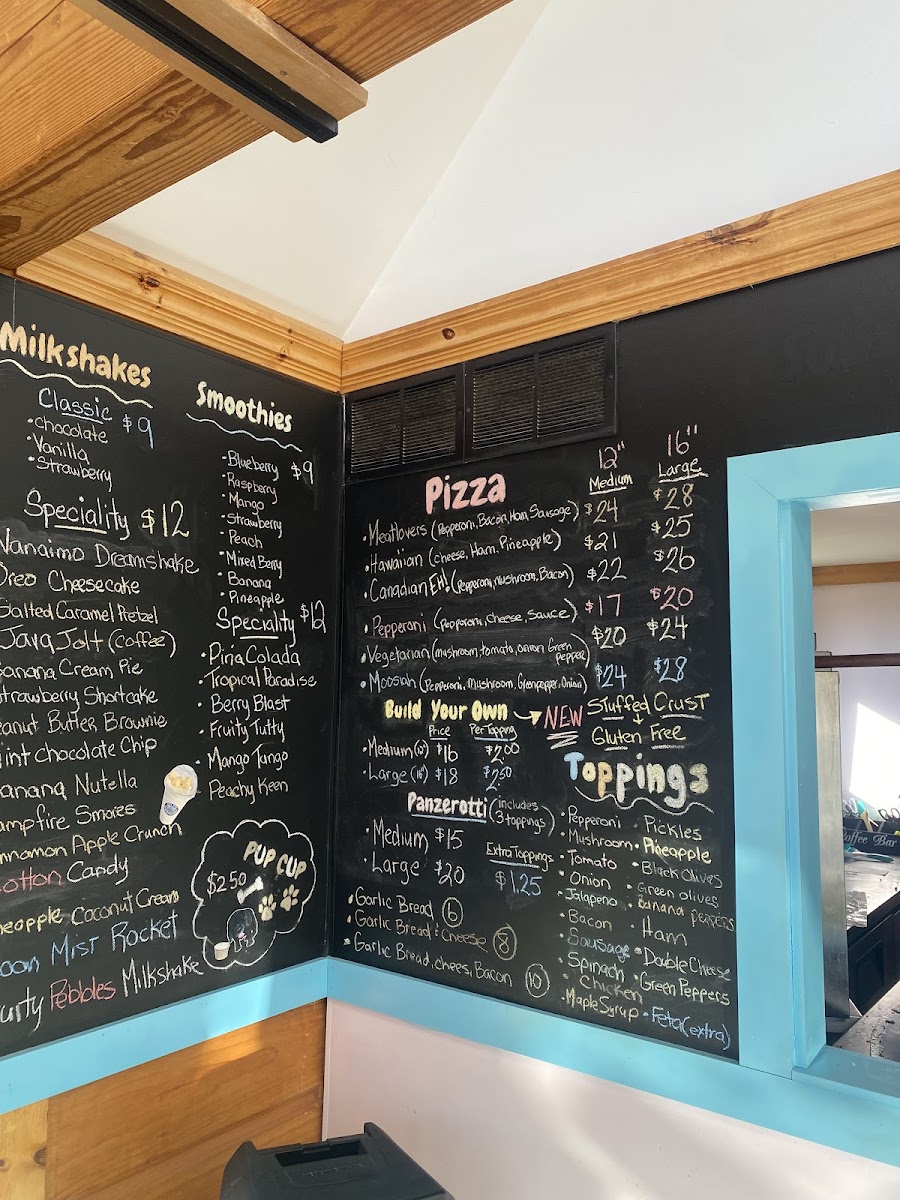 Milkshakes
Classic $9
• chocolate
• Vanilla
• Strawberry
Speciality $12
Nanaimo Dreamshake
Oreo Cheesecake
Salted Caramel Pretzel
Java Jolt (Coffee)
Banana Cream Pie
Strawberry Shortcake
Peanut Butter Brownie
Mint Chocolate Chip
Banana Nutella
Campfire Smores
Cinnamon Apple Crunch
Cotton Candy
Pineapple Coconut Cream
Mist Rocket
Pebbles Milkshake
Smoothies
• Blueberry $9
• Raspberry
• Mango
• Strawberry
• Peach
• Mixed Berry
• Banana
• Pineapple
Speciality $12
• Piña Colada
• Tropical Paradise
• Berry Blast
• Fruity Tutty
• Mango Tango
• Peachy Keen
PUP CUP
$2.50
Pizza 12" Medium 16" Large
• Meatlovers (Pepperoni, Bacon, Ham, Sausage) $24 $28
• Hawaiian (cheese, Ham, Pineapple) $21 $25
• Canadian Eh! (Pepperoni, Mushroom, Bacon) $22 $26
• Pepperoni (Pepperoni, Cheese, Sauce) $17 $20
• Vegetarian (mushroom, tomato, onion Green Pepper) $20 $24
• Moosiah (Pepperoni, Mushroom, Greenpepper, Onion) $24 $28
Build Your Own
Price Per Topping
• Medium (12") $16 $2.00
• Large (16") $18 $2.50
NEW Stuffed Crust
Gluten Free
Panzerotti (includes 3 toppings)
• Medium $15
• Large $20
Extra Toppings
$1.25
• Garlic Bread 6
• Garlic Bread & Cheese 8
• Garlic Bread, cheese, Bacon 10
Toppings
• Pepperoni
• Mushroom
• Tomato
• Onion
• Jalapeno
• Bacon
• Sausage
• Spinach
• Chicken
• Maple Syrup
Pickles
• Pineapple
• Black Olives
• Green olives
• Banana peppers
• Ham
• Double Cheese
• Green Peppers
• Feta (extra)
Coffee Bar